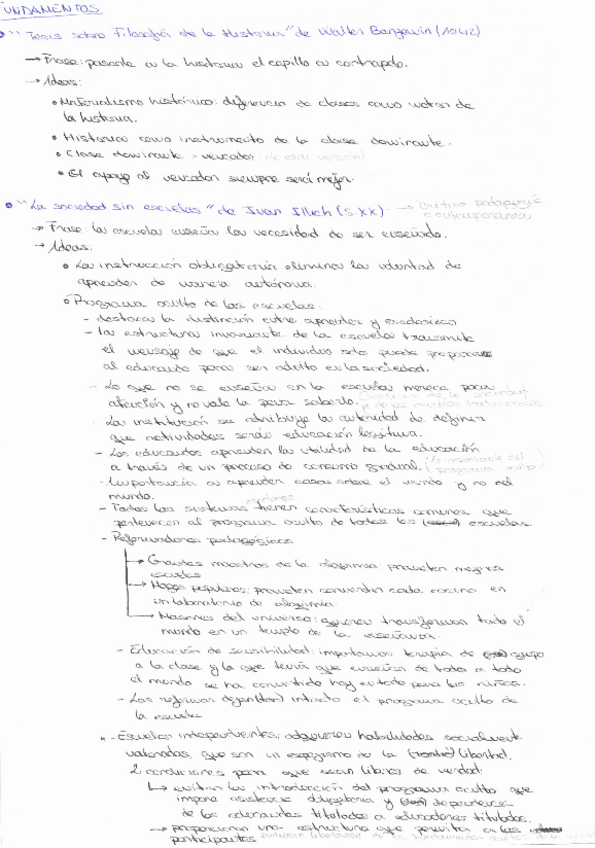 FUNDAMENTOS
"Tesis sobre Filosofía de la Historia" de Walter Benjamin (1942)
→ Frase: pasarle a la historia el cepillo a contrapelo.
→ Ideas:
• Materialismo histórico: diferencia de clases como motor de
la historia.
• Historia como instrumento de la clase dominante.
• Clase dominante = vencedor
• El apoyo al vencedor siempre será mejor.
• "La sociedad sin escuelas" de Ivan Illich (S.XX) → Crítica pedagógica
contemporánea
→ Frase: la escuela enseña la necesidad de ser enseñado.
→ Ideas:
• La instrucción obligatoria elimina la voluntad de
aprender de manera autónoma.
• Programa oculto de las escuelas:
- destaca la distinción entre aprender y
- la estructura invariante de la escuela transmite
el mensaje de que el individuo solo puede prepararse
al educando para ser adulto en la sociedad.
- Lo que no se enseña en la escuela merece poca
atención y no vale la pena saberlo.
- La institución se atribuye la autoridad de definir
que actividades serán educación legítima.
- Los educandos aprenden la utilidad de la educación
a través de un proceso de consumo gradual.
- Importancia a aprender cosas sobre el mundo y no del
mundo.
- Todos los sistemas tienen características comunes que
pertenecen al programa oculto de todas las escuelas.
- Reformadores pedagógicos
→ Grandes maestros de la alquimia: prometen mejores
escuelas
→ Magos populares: prometen convertir cada cocina en
un laboratorio de alquimia.
→ Masones del universo: quieren transformar todo el
mundo en un templo de la enseñanza.
- Educación de sensibilidad: importamos terapia de grupo
a la clase y lo que tenía que enseñar de todo a todo
el mundo se ha convertido hoy en todo para los niños.
- Las reformas dejan intacto el programa oculto de
la escuela
- Escuelas independientes: adquieren habilidades socialmente
valoradas, que son un espejismo de la libertad.
2 condiciones para que sean libres de verdad:
→ evitar la introducción del programa oculto que
impone asistencia obligatoria y dependencia
de los educandos titulados a educadores titulados.
→ proporcionar una estructura que permita a los
participantes